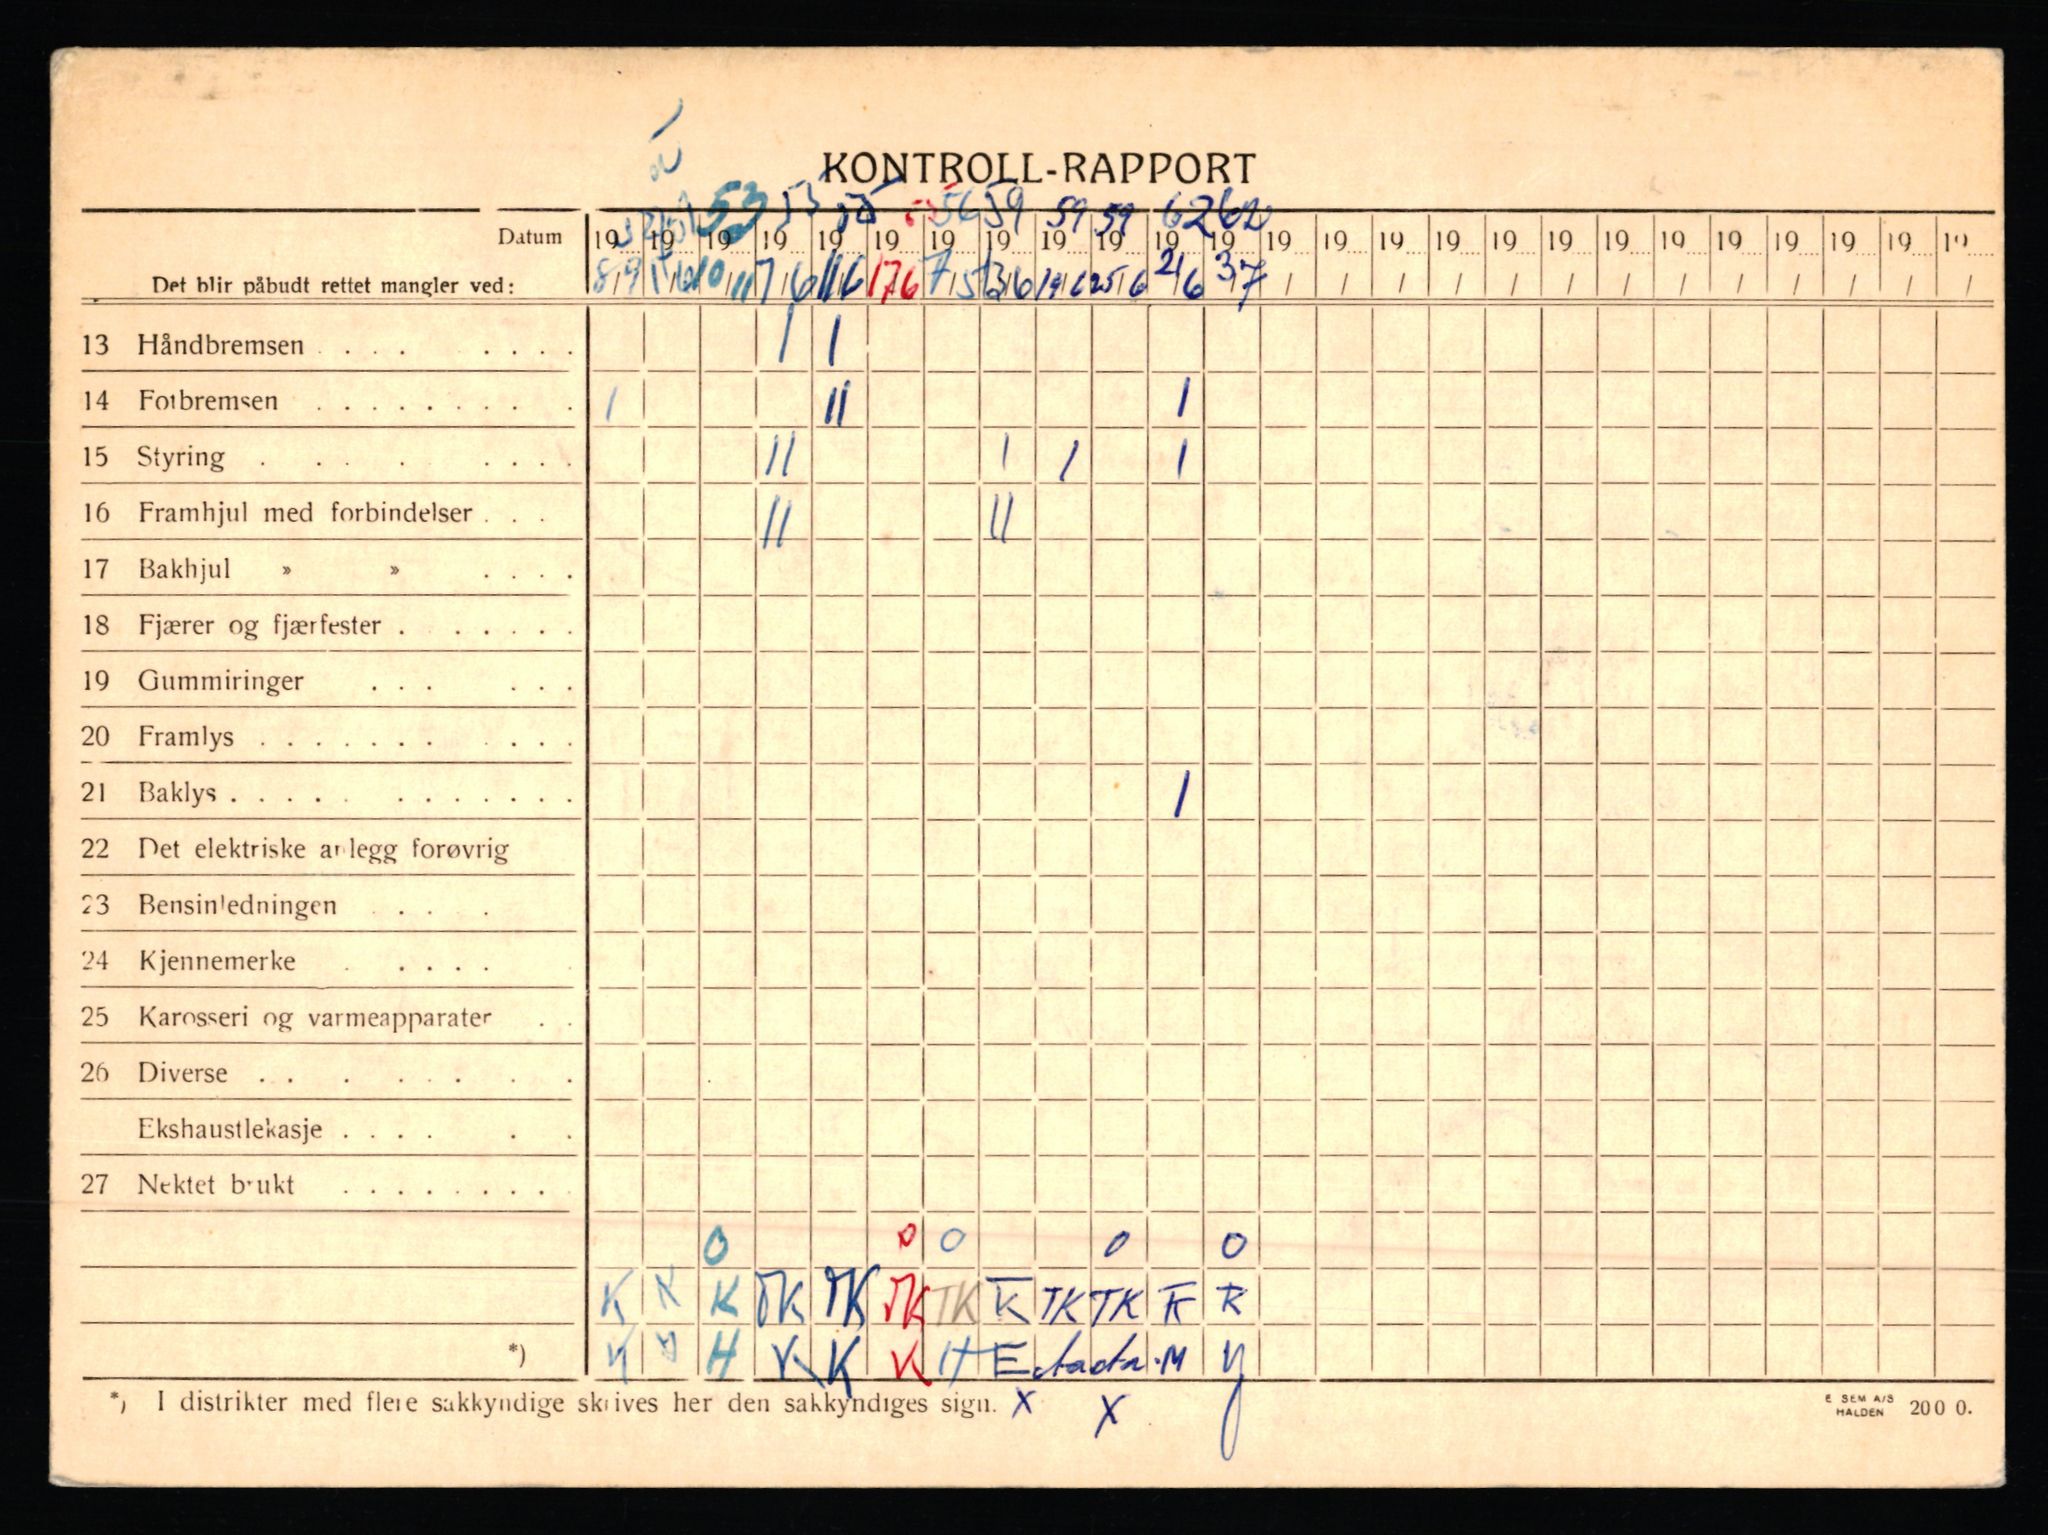 KONTROLL-RAPPORT
53 53 55 55 56 59 59 59 62 62
Datum 19 19 19 19 19 19 19 19 19 19 19 19 19 19 19 19 19 19 19 19 19 19 19 19 19
Det blir påbudt rettet mangler ved: 8/9 1/6 10/11 7/6 11/6 17/6 7/5 13/6 19/6 25/6 2/6 3/7 / / / / / / / / / / / / /
13 Håndbremsen I I
14 Fotbremsen I II I
15 Styring II I I I
16 Framhjul med forbindelser II II
17 Bakhjul » »
18 Fjærer og fjærfester
19 Gummiringer
20 Framlys
21 Baklys I
22 Det elektriske anlegg forøvrig
23 Bensinledningen
24 Kjennemerke
25 Karosseri og varmeapparater
26 Diverse
Ekshaustlekasje
27 Nektet brukt
O O O O O
K K K TK TK TK TK K TK TK K K
*) H K K K H E M
*) I distrikter med flere sakkyndige skrives her den sakkyndiges sign. X X
E SEM A/S
HALDEN 200 0.